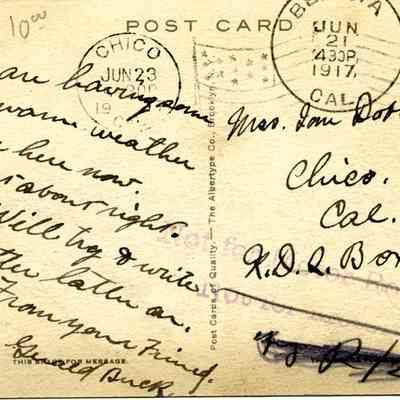 10⁰⁰
POST CARD
CHICO
JUN 23
19
CAL.
JUN
21
430P
1917
CAL.
are having some
warm weather
here now.
about right.
Will try & write
letter latter on.
From your Friend.
Gerald Buck.
THIS SPACE FOR MESSAGE.
Post Cards of Quality. — The Albertype Co., Brooklyn, N.Y.
Mrs. Tom
Chico.
Cal.
R.D.2. Box
Not for
Not for